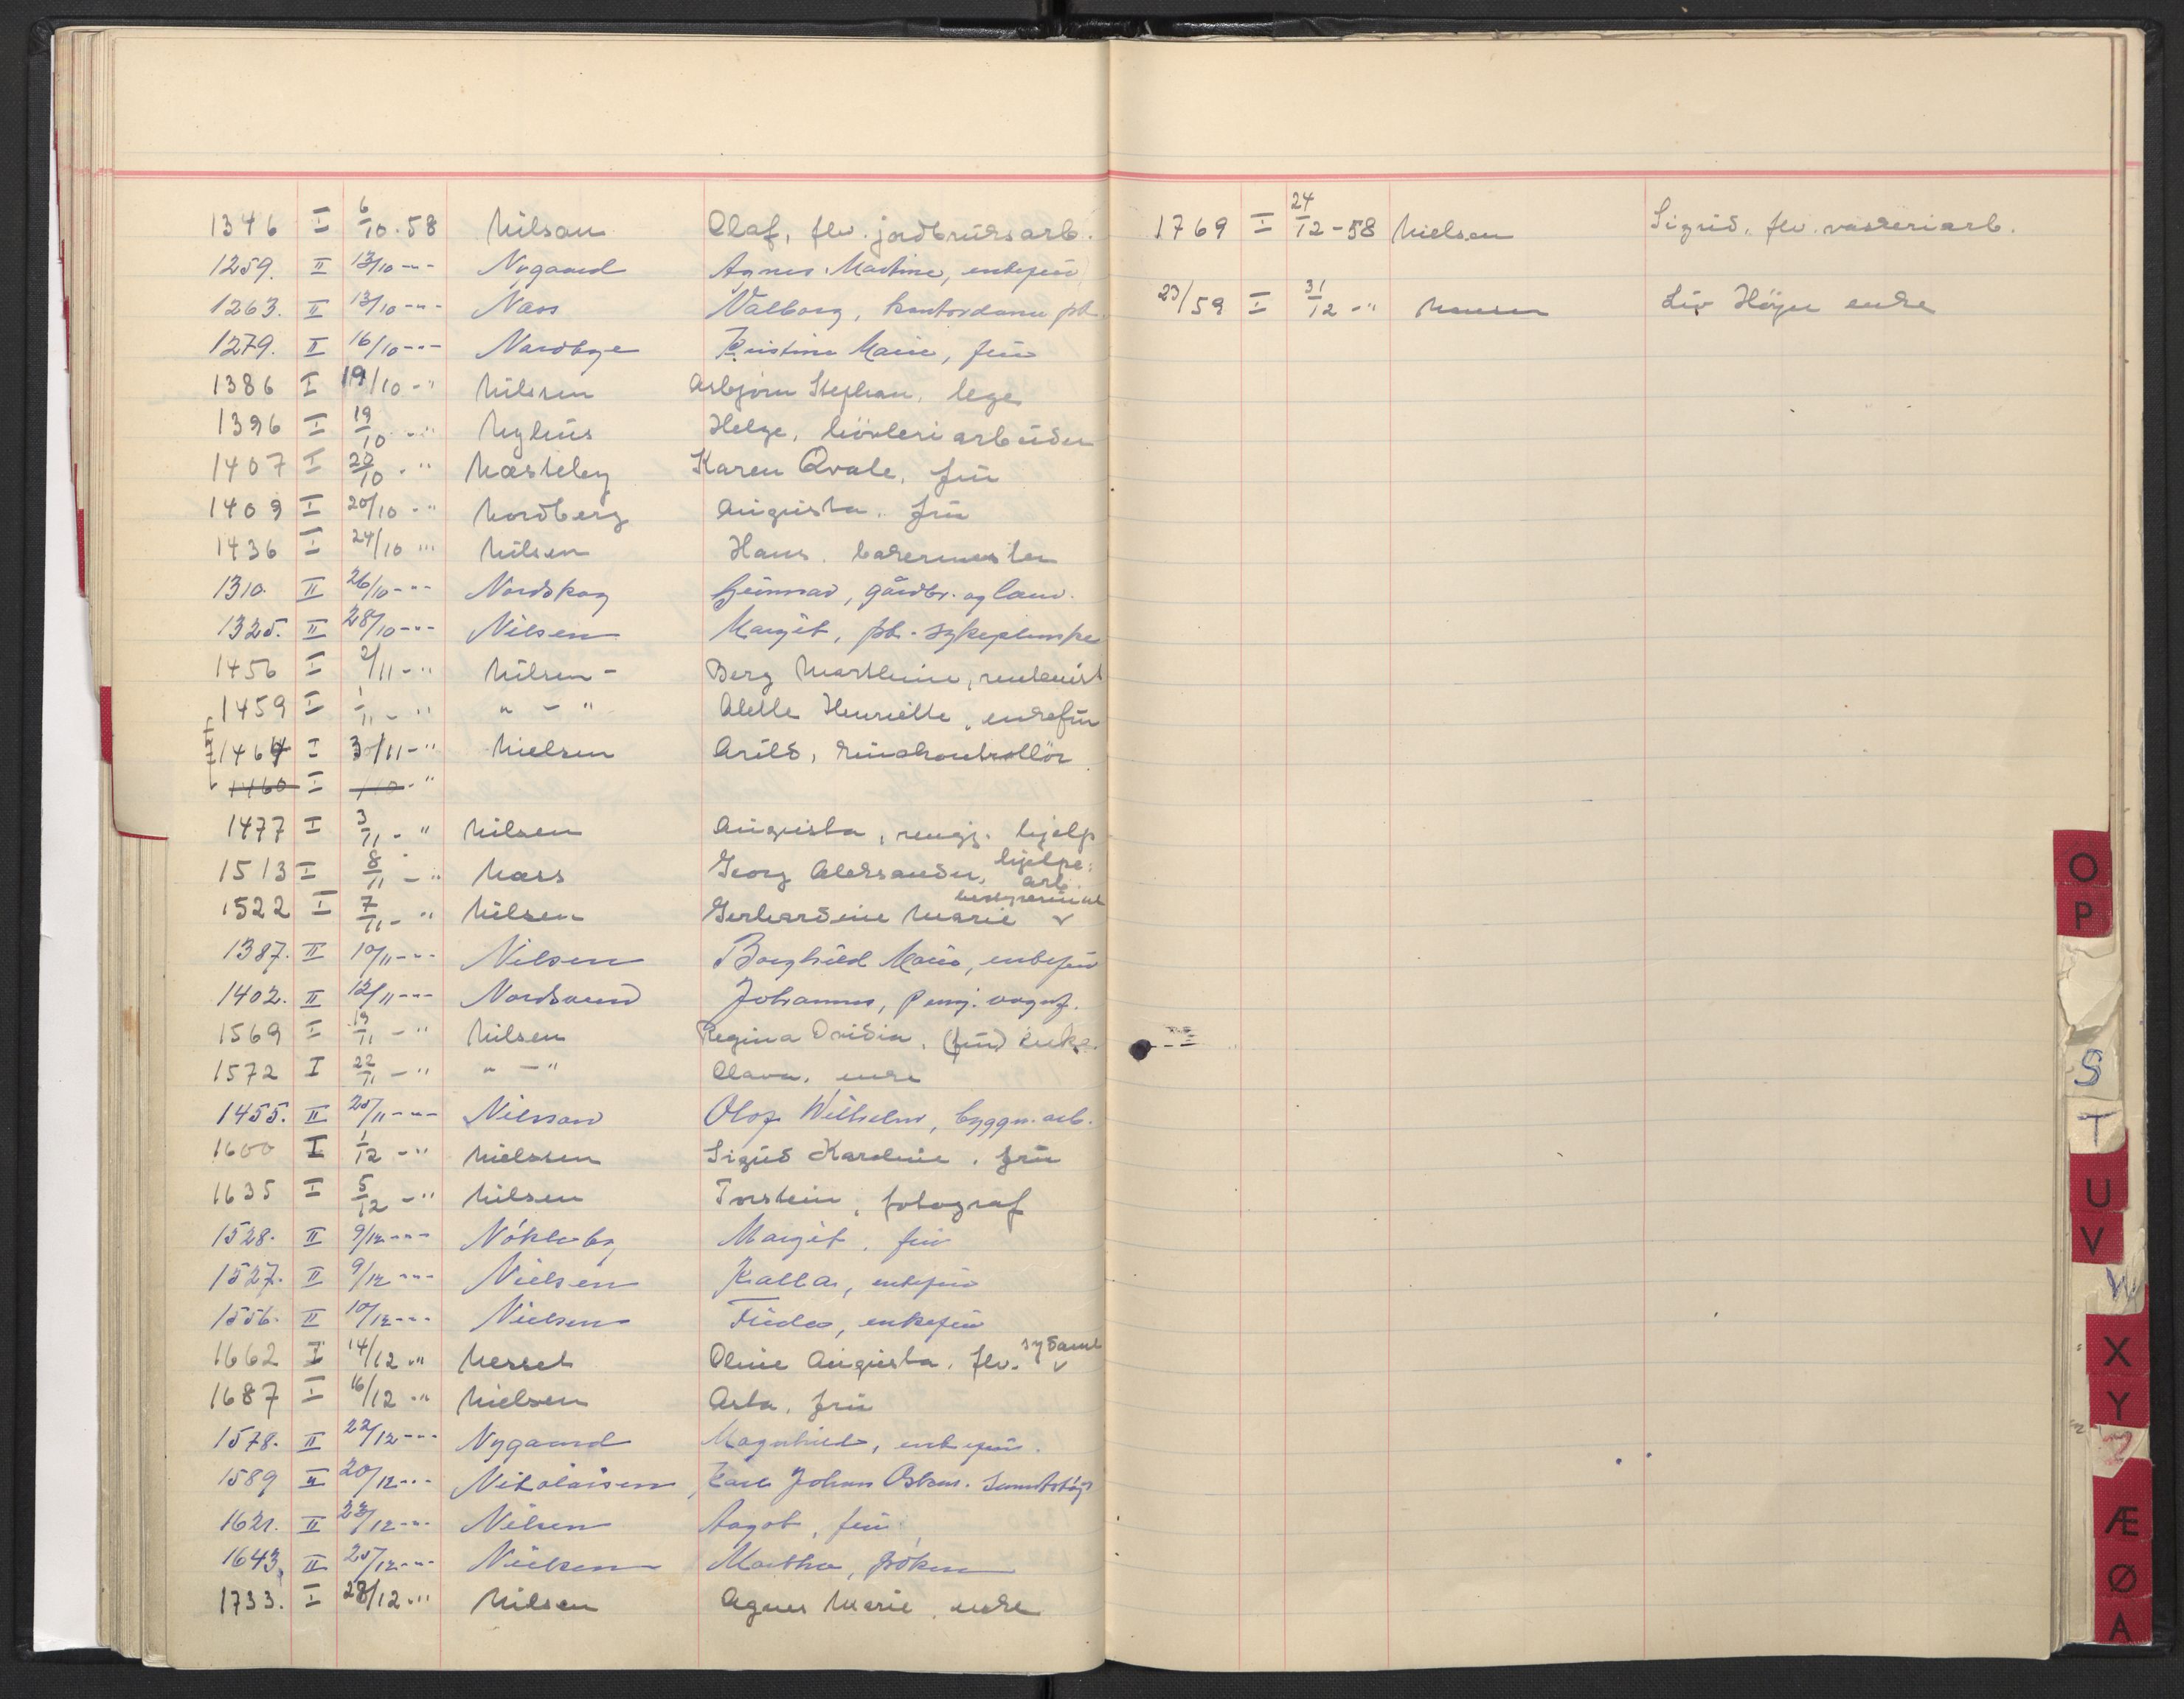 1346 I 6/10-58 Nilsen Olaf, flv. jordbruksarb.
1259. II 13/10 -"- Nygaard Agnes Martine, enkefru
1263. II 13/10 -"- Næss Valborg, kontordame
1279. II 16/10 -"- Nordbye Kristine Marie, fru
1386 I 19/10 -" Nilsen Asbjørn Stephan, lege
1396 I 19/10 -" Nyhus Helge, høvleriarbeider
1407 I 22/10 -" Næsteby Karen Qvale, fru
1409 I 20/10 -" Nordberg Augusta, fru
1436 I 24/10 -" Nilsen Hans, bakermester
1310. II 26/10 -"- Nordskog Gunnar, gårdbr. og
1325. II 28/10 -"- Nilsen Margit, sykepleierske
1456 I 2/11 -" Nilsen - Berg Marthine, rentenist
1459 I 1/11 -" " - " Alette Henriette, enkefru
1464 I 3/11 -" Nielsen Arild, kinokontrollør
1460 I /10 -"
1477 I 3/11 -" Nilsen Augusta, rengj. hjelp
1513 I 8/11 -" Næss Georg Aleksander, hjelpe: arb.
1522 I 7/11 -" Nilsen Gerhardine Marie
1387. II 10/11 -"- Nilsen Borghild Marie, enkefru
1402. II 12/11 -"- Nordsand Johannes, pensj. vognf.
1569 I 19/11 -" Nilsen Regina Ovidia, (fru) enke.
1572 I 22/11 -" " - " Olava, enke
1455. II 25/11 -"- Nilsson Olof Wilhelm, byggn. arb.
1600 I 1/12 -" Nielssen Sigrid Karoline, fru
1635 I 5/12 -" Nilsen Torstein, fotograf
1528. II 9/12 -"- Nökleby Margit, fru
1527. II 9/12 -"- Nielsen Kalla, enkefru
1556. II 10/12 -"- Nielsen Frida, enkefru
1662 I 14/12 -" Nerset Oline Augusta, flv. sydame
1687 I 16/12 -" Nielsen Asta, fru
1578. II 22/12 -"- Nygaard Magnhild, enkefru.
1589 II 20/12 -"- Nikolaisen Karl Johan Oskar.
1621. II 23/12 -"- Nilsen Aagot, fru
1643. II 25/12 -"- Nielsen Martha, frøken
1733. I 28/12 -" Nilsen Agnes Marie, enke
1769 I 24/12-58 Nielsen Sigrid, flv. vaskeriarb.
23/59 I 31/12 -" Nansen Liv Høyer enke
O
P
S
T
U
V
W
X
Y
Æ
Ø
A